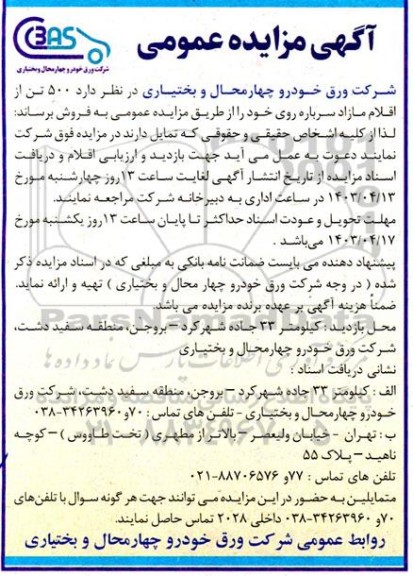 آگهی مزایده عمومی
CBAS
شرکت ورق خودرو چهارمحال و بختیاری
شرکت ورق خودرو چهارمحال و بختیاری در نظر دارد ۵۰۰ تن از
اقلام مازاد سرباره روی خود را از طریق مزایده عمومی به فروش برساند:
لذا از کلیه اشخاص حقیقی و حقوقی که تمایل دارند در مزایده فوق شرکت
نمایند دعوت به عمل می آید جهت بازدید و ارزیابی اقلام و دریافت
اسناد مزایده از تاریخ انتشار آگهی لغایت ساعت ۱۳ روز چهارشنبه مورخ
۱۴۰۳/۰۴/۱۳ در ساعت اداری به دبیرخانه شرکت مراجعه نمایند.
مهلت تحویل و عودت اسناد حداکثر تا پایان ساعت ۱۳ روز یکشنبه مورخ
۱۴۰۳/۰۴/۱۷ می‌باشد .
پیشنهاد دهنده می بایست ضمانت نامه بانکی به مبلغی که در اسناد مزایده ذکر
شده ( در وجه شرکت ورق خودرو چهار محال و بختیاری ) تهیه و ارائه نماید.
ضمناً هزینه آگهی بر عهده برنده مزایده می باشد.
محل بازدید : کیلومتر ۳۳ جاده شهرکرد – بروجن، منطقه سفید دشت،
شرکت ورق خودرو چهارمحال و بختیاری
نشانی دریافت اسناد :
الف : کیلومتر ۳۳ جاده شهرکرد – بروجن، منطقه سفید دشت، شرکت ورق
خودرو چهارمحال و بختیاری - تلفن های تماس : ۷۰ و ۳۴۲۶۳۹۶۰-۰۳۸
ب : تهران - خیابان ولیعصر – بالاتر از مطهری ( تخت طاووس ) – کوچه
ناهید – پلاک ۵۵
تلفن های تماس : ۷۷ و ۸۸۷۰۶۵۷۶-۰۲۱
متمایلین به حضور در این مزایده می توانند جهت هر گونه سوال با تلفن‌های
۷۰ و ۳۴۲۶۳۹۶۰-۰۳۸ داخلی ۲۰۲۸ تماس حاصل نمایند.
روابط عمومی شرکت ورق خودرو چهارمحال و بختیاری